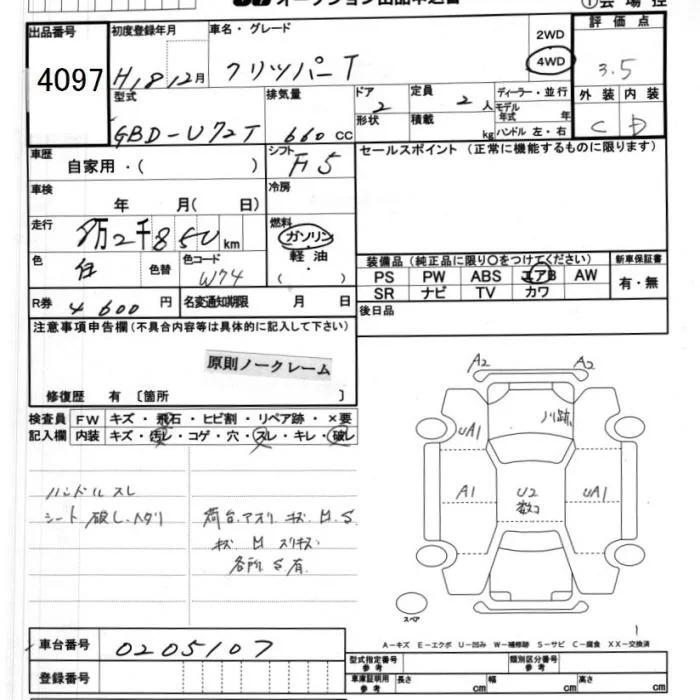 オークション出品申込書
①会場控
出品番号 初度登録年月 車名・グレード 2WD 評価点
4097 H18 12月 クリッパーT 4WD 3.5
型式 排気量 ドア 2 定員 2人 ディーラー・並行 外装 内装
GBD-U72T 660cc 形状 積載 kg モデル年式 年 ハンドル 左・右 C D
車歴 シフト セールスポイント (正常に機能するものに限ります)
自家用・( ) F5
車検 冷房
年 月( 日)
走行 燃料
8万2千850km ガソリン
色 色替 色コード 軽油 装備品 (純正品に限り○をつけてください) 新車保証書
白 W74 ( ・ ) PS PW ABS エアB AW 有・無
SR ナビ TV カワ
R券 4600円 名変通知期限 月 日 後日品
注意事項申告欄 (不具合内容等は具体的に記入して下さい)
原則ノークレーム
修復歴 有 〔箇所 〕
検査員 FW キズ・飛石・ヒビ割・リペア跡・×要
記入欄 内装 キズ・汚レ・コゲ・穴・スレ・キレ・破レ
A2 A2
UA1
A1 U2 UA1
ハンドルスレ
シート破レ、ヘタリ
荷台、アオリ キズ、凹、S
キズ 凹 スリキズ
各所S有
スペア
A-キズ E-エクボ U-凹み W-補修跡 S-サビ C-腐食 XX-交換済
車台番号 0205107
登録番号
型式指定番号 参考 類別区分番号 参考
車庫証明用 参考 長さ cm 幅 cm 高さ cm